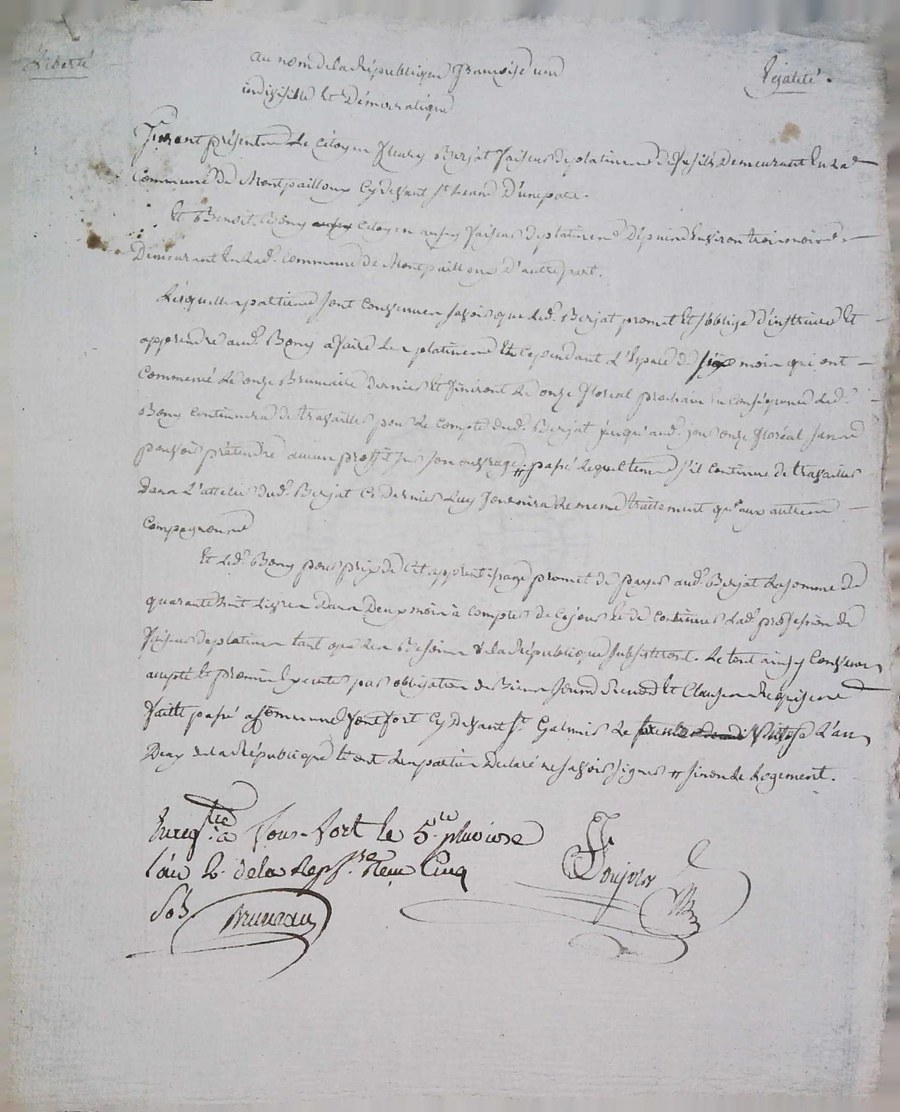 Liberté
au nom de la République françoise une
Égalité.
indivisible et Démocratique
Furent présents Le Citoyen fleury Berjat faiseur de platines de fusils Demeurant en la de
Commune de Montpailloux Cy devant st heand D'une part.
Et Benoit Bony Citoyen aussy faiseur de platines Depuis Environ trois mois
Demeurant En lad. Commune de Montpailloux D'autre part.
Lesquelles parties sont Convenues savoir que led. Berjat promet et s'oblige d'instruire et
apprendre aud. Bony a faire des platines et Cependant L'Espace de six mois qui ont
Commencé Le onze Brumaire dernier et finiront Le onze floreal prochain en conséquence led.
Bony Continuera de travailler pour Le Compte dud. Berjat jusqu'aud. jour onze floréal sans
pouvoir prétendre aucun proffit sur son ouvrage # passé lequel tems s'il continue de travailler
dans L'attelier dud. Berjat Ce dernier Luy fournira le meme traitement qu'aux autres
Compagnons
Et led. Bony pour prix de cet apprentissage promet de payer aud. Berjat la somme de
quarante huit Livres Dans Deux mois à Compter de Ce jour et de Continuer lad. profession de
faiseur de platines tant que les Besoins de la République subsisteront. Le tout ainsy Convenu
accepté et promis Executer par obligation de Biens Soumis Renon. et Clauses Requises
faitte passé a Commune fontfort Cy devant St. Galmier Le L'an
Deux de la République et ont les parties Declaré ne savoir signer # sinon le logement.
Enregtré a fons-fort le 5. pluviose
l'an 2. de la Rep. Reçu Cinq
Sols Bruneau